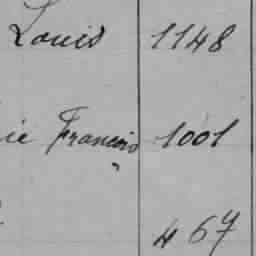 Louis 1148
ie Francois 1001
"
467